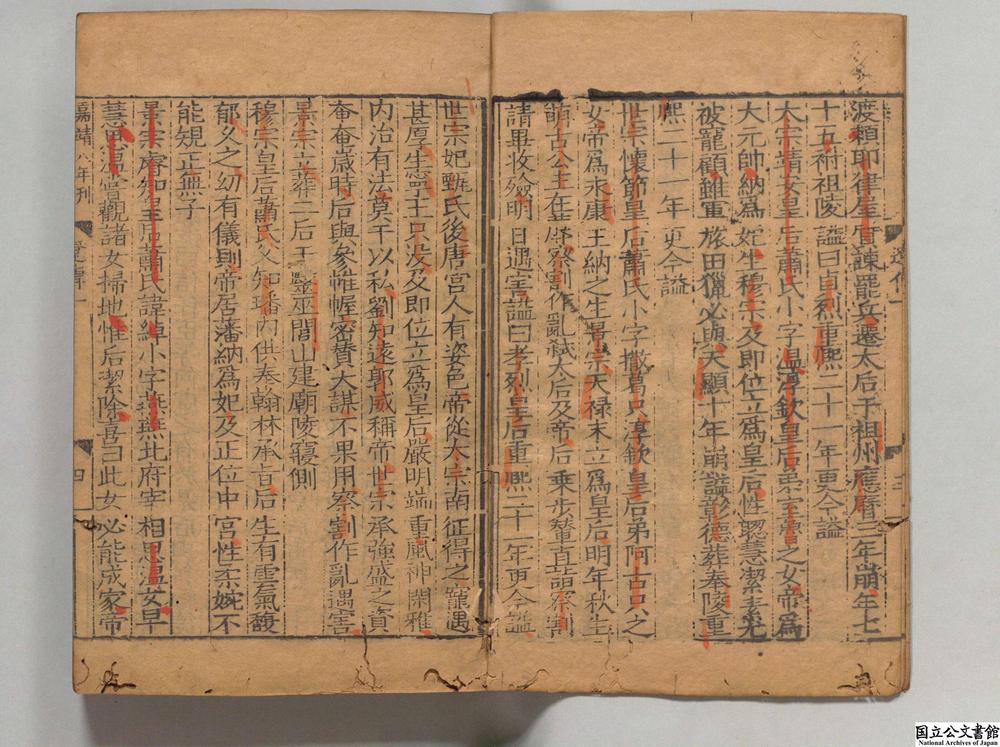 渡賴耶律屋質諫罷兵遷太后于祖州應曆三年崩年七
十五祔祖陵謚曰貞烈重熙二十一年更今謚
太宗靖安皇后蕭氏小字溫淳欽皇后弟室魯之女帝為
大元帥納為妃生穆宗及即位立為皇后性聰慧潔素尤
被寵顧雖軍旅田獵必與天顯十年崩謚彰德葬奉陵重
熙二十一年更今謚
世宗懷節皇后蕭氏小字撒葛只淳欽皇后弟阿古只之
女帝為永康王納之生景宗天祿末立為皇后明年秋生
萌古公主在蓐察割作亂弑太后及帝后乘步輦直詣察割
請畢收殮明日遇害謚曰孝烈皇后重熙二十一年更今謚
世宗妃甄氏後唐宮人有姿色帝從太宗南征得之寵遇
甚厚生寧王只没及即位立為皇后嚴明端重風神閑雅
内治有法莫干以私劉知遠郭威稱帝世宗承強盛之資
奄奄歲時后與參帷幄密贊大謀不果用察割作亂遇害
景宗立葬二后于醫巫閭山建廟陵寢側
穆宗皇后蕭氏父知璠内供奉翰林承旨后生有雲氣馥
郁久之幼有儀則帝居藩納為妃及正位中宮性柔婉不
能規正無子
景宗睿知皇后蕭氏諱綽小字燕燕北府宰相思溫女早
慧思溫嘗觀諸女掃地惟后潔除喜曰此女必能成家帝
遼傳一
三
嘉靖八年刊
遼傳一
四
国立公文書館
National Archives of Japan